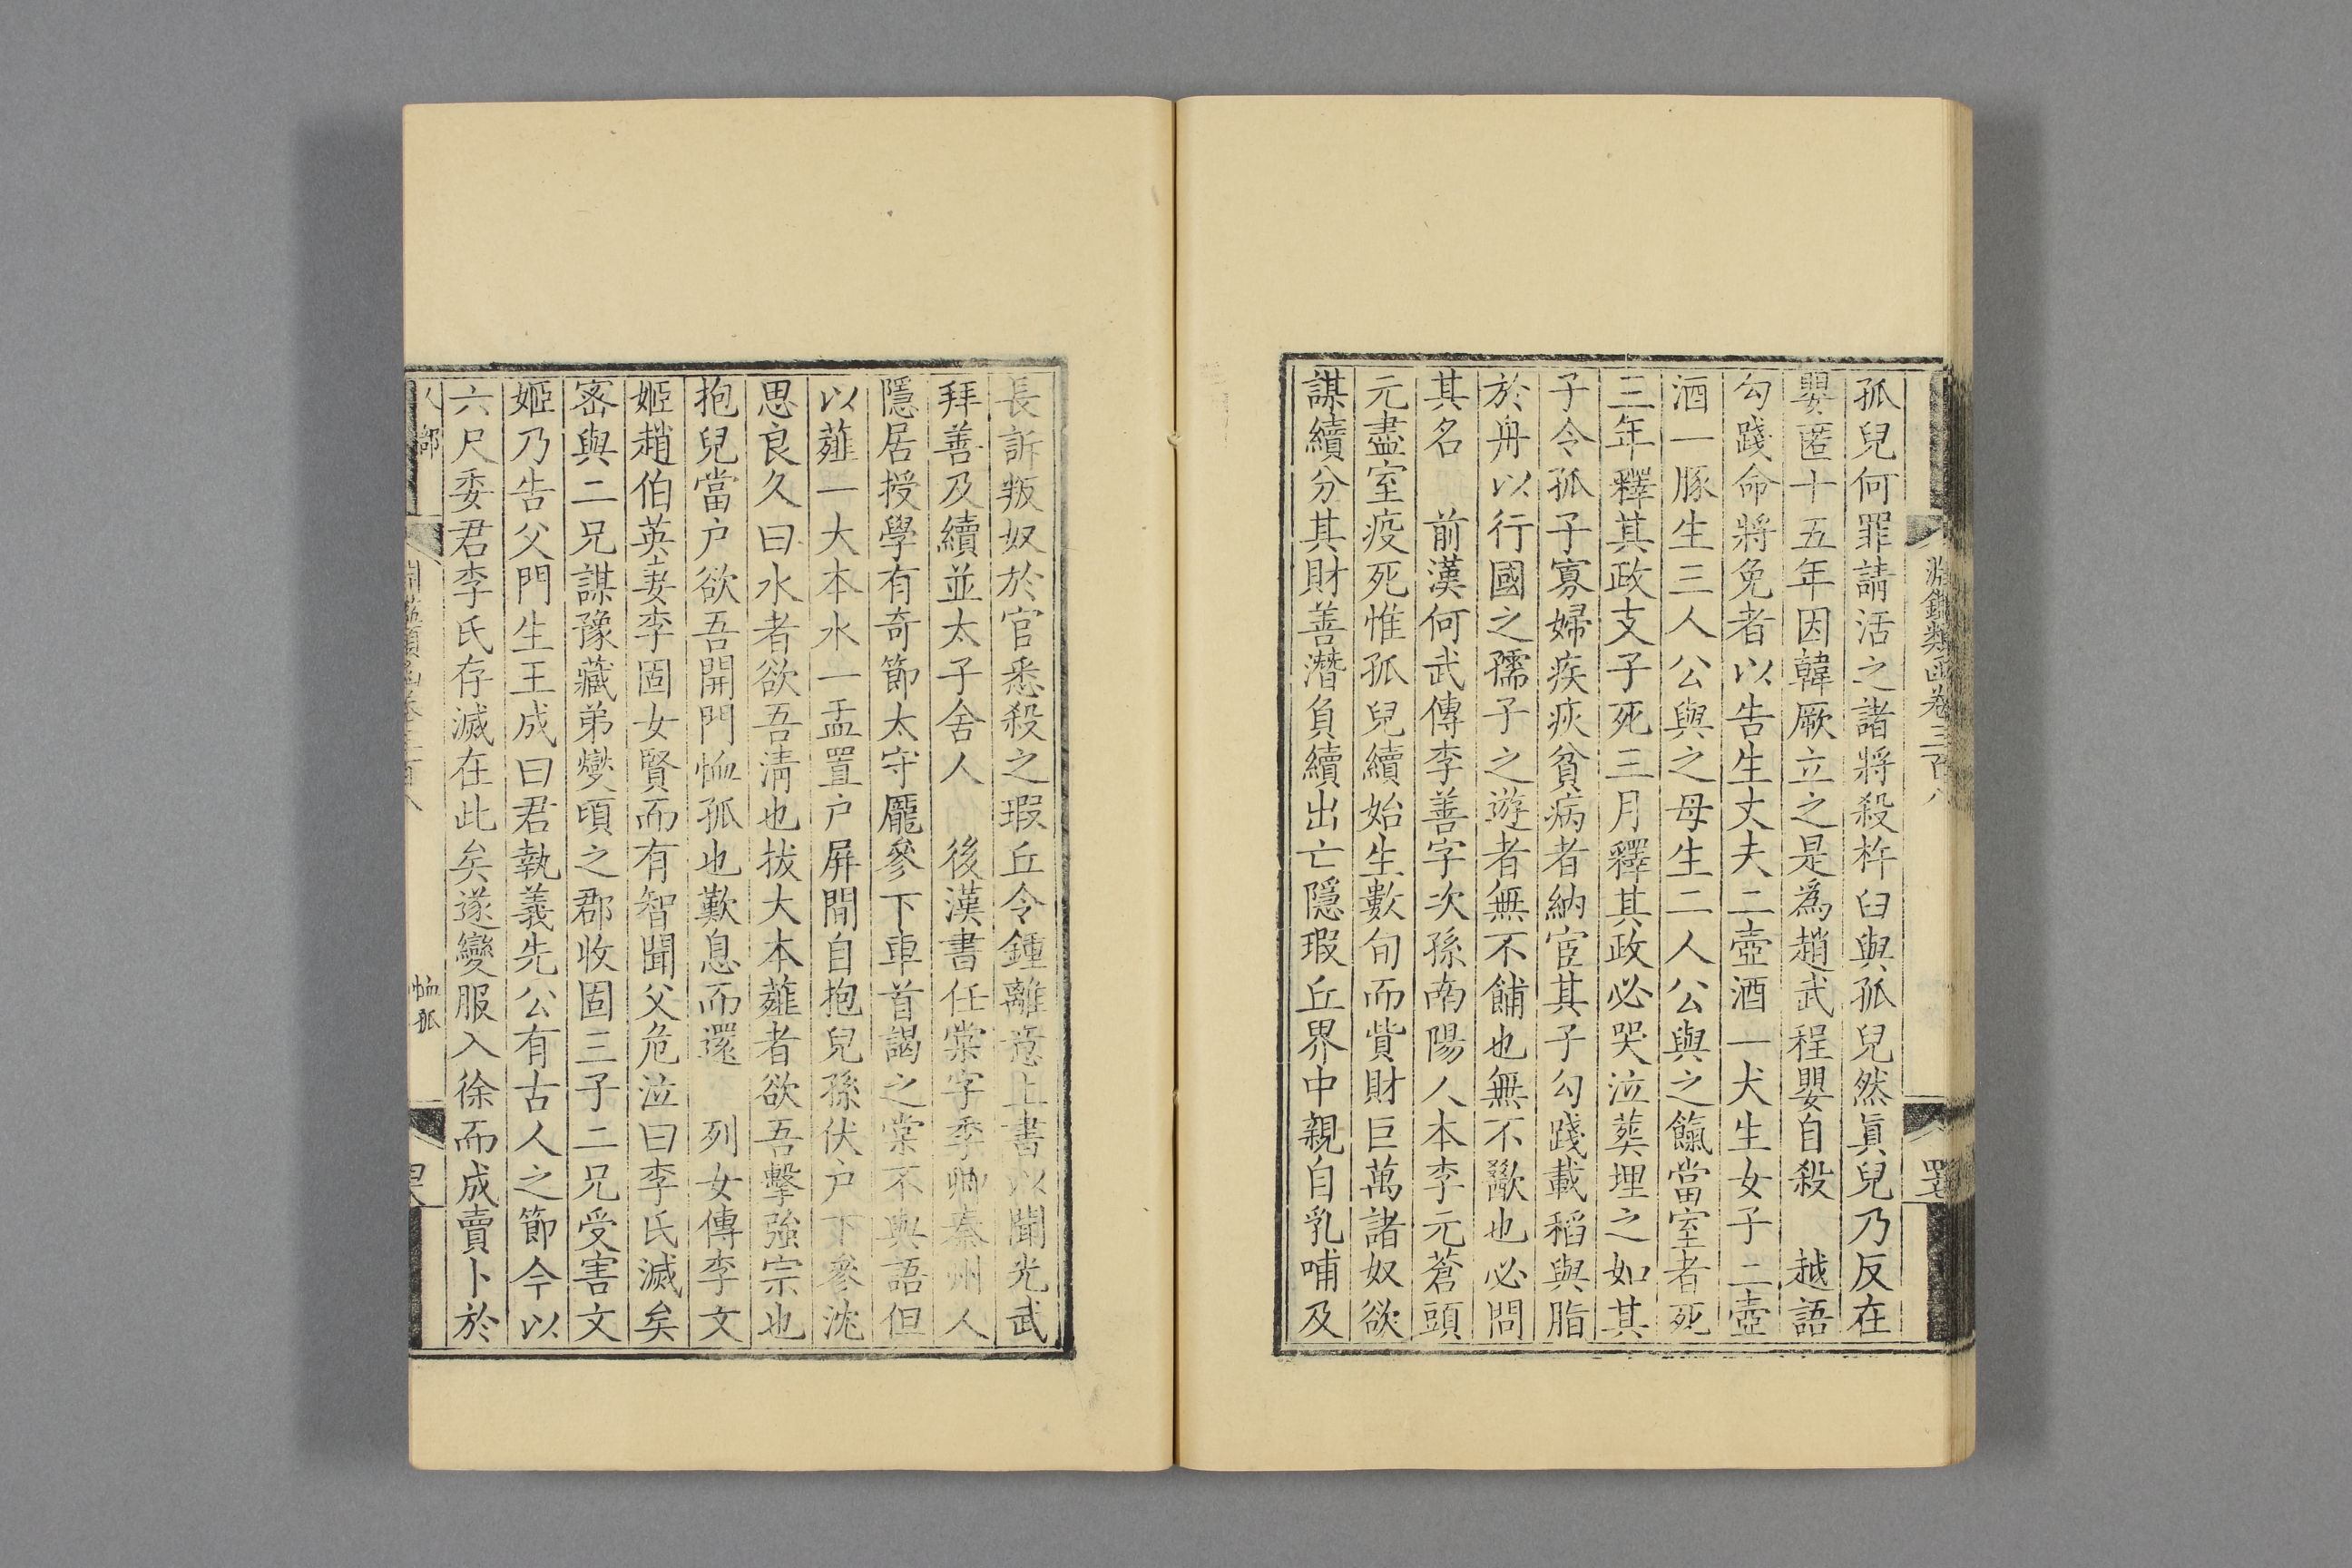 淵鑑類函卷三百八
孤兒何罪請活之諸將殺杵臼與孤兒然眞兒乃反在
嬰匿十五年因韓厥立之是爲趙武程嬰自殺　越語
勾踐命將免者以告生丈夫二壺酒一犬生女子二壺
酒一豚生三人公與之母生二人公與之餼當室者死
三年釋其政支子死三月釋其政必哭泣葬埋之如其
子令孤子寡婦疾疢貧病者納宦其子勾踐載稻與脂
於舟以行國之孺子之遊者無不餔也無不歠也必問
其名　前漢何武傳李善字次孫南陽人本李元蒼頭
元盡室疫死惟孤兒續始生數旬而貲財巨萬諸奴欲
謀續分其財善潛負續出亡隱瑕丘界中親自乳哺及
長訴叛奴於官悉殺之瑕丘令鍾離意上書以聞光武
拜善及續並太子舍人　後漢書任棠字季卿秦州人
隱居授學有奇節太守龐參下車首謁之棠不與語但
以薤一大本水一盂置户屏間自抱兒孫伏户下參沈
思良久曰水者欲吾清也拔大本薤者欲吾擊強宗也
抱兒當户欲吾開門恤孤也歎息而還　列女傳李文
姬趙伯英妻李固女賢而有智聞父危泣曰李氏滅矣
密與二兄謀豫藏弟燮頃之郡收固三子二兄受害文
姬乃告父門生王成曰君執義先公有古人之節今以
六尺委君李氏存滅在此矣遂變服入徐而成賣卜於
人部
恤孤